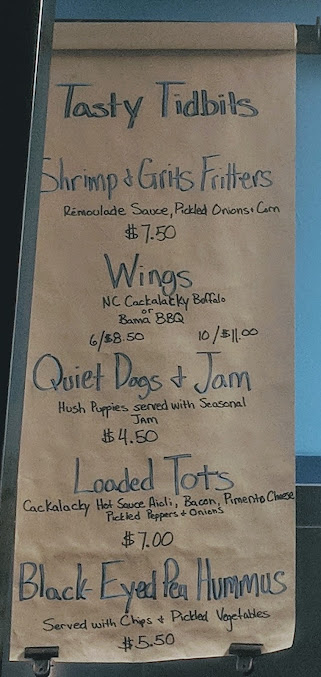 Tasty Tidbits
Shrimp & Grits Fritters
Rémoulade Sauce, Pickled Onions & Corn
$7.50
Wings
NC Cackalacky Buffalo
or
Bama BBQ
6/$8.50 10/$11.00
Quiet Dogs & Jam
Hush Puppies served with Seasonal
Jam
$4.50
Loaded Tots
Cackalacky Hot Sauce Aioli, Bacon, Pimento Cheese
Pickled Peppers & Onions
$7.00
Black-Eyed Pea Hummus
Served with Chips & Pickled Vegetables
$5.50